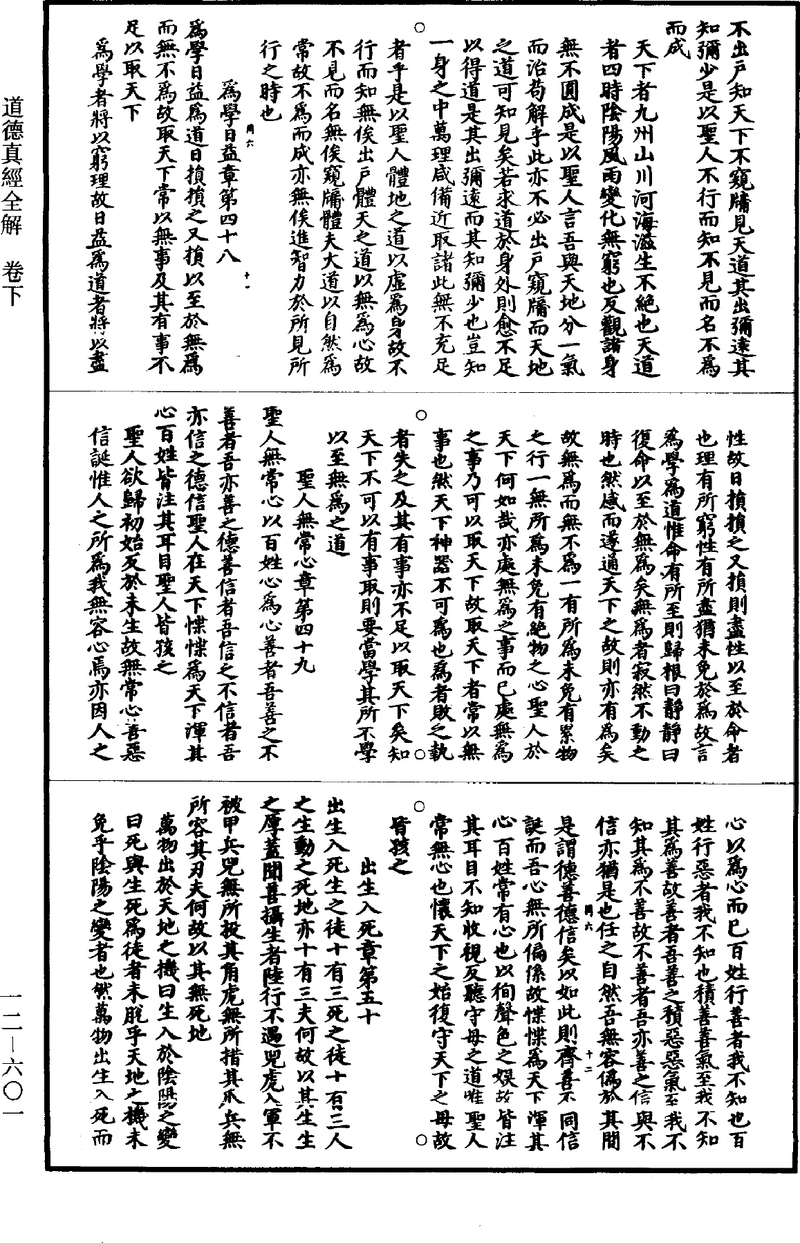 不出戶知天下不窺牖見天道其出彌遠其
知彌少是以聖人不行而知不見而名不為
而成
天下者九州山川河海滋生不絕也天道
者四時陰陽風雨變化無窮也反觀諸身
無不圓成是以聖人言吾與天地分一氣
而治苟解乎此亦不必出戶窺牖而天地
之道可知見矣若求道於身外則愈不足
以得道是其出彌遠而其知彌少也豈知
一身之中萬理咸備近取諸此無不充足
○
者乎是以聖人體地之道以虛為身故不
行而知無俟出戶體天之道以無為心故
不見而名無俟窺牖體夫大道以自然為
常故不為而成亦無俟進智力於所見所
行之時也
同六 十一
為學日益章第四十八
為學日益為道日損損之又損以至於無為
而無不為故取天下常以無事及其有事不
足以取天下
為學者將以窮理故日益為道者將以盡
性故日損損之又損則盡性以至於命者
也理有所窮性有所盡猶未免於為故言
為學為道惟命有所至則歸根曰靜靜曰
復命以至於無為矣無為者寂然不動之
時也然感而遂通天下之故則亦有為矣
故無為而無不為一有所為未免有累物
之行一無所為未免有絕物之心聖人於
天下何如哉亦處無為之事而已處無為
之事乃可以取天下故取天下者常以無
事也然天下神器不可為也為者敗之執
○ ○
者失之及其有事亦不足以取天下矣知
天下不可以有事取則要當學其所不學
以至無為之道
聖人無常心章第四十九
聖人無常心以百姓心為心善者吾善之不
善者吾亦善之德善信者吾信之不信者吾
亦信之德信聖人在天下惵惵為天下渾其
心百姓皆注其耳目聖人皆孩之
聖人欲歸初始反於未生故無常心善惡
信誕惟人之所為我無容心焉亦因人之
心以為心而已百姓行善者我不知也百
姓行惡者我不知也積善善氣至我不知
其為善故善者吾善之積惡惡氣至我不
知其為不善故不善者吾亦善之信與不
信亦猶是也任之自然吾無容偽於其間
同六 十二
是謂德善德信矣以如此則齊善不同信
誕而吾心無所偏係故惵惵為天下渾其
心百姓常有心也以徇聲色之娛故皆注
其耳目不知收視反聽守母之道唯聖人
常無心也懷天下之始復守天下之母故
○ ○
皆孩之
出生入死章第五十
出生入死生之徒十有三死之徒十有三人
之生動之死地亦十有三夫何故以其生生
之厚蓋聞善攝生者陸行不遇兕虎入軍不
被甲兵兕無所投其角虎無所措其爪兵無
所容其刃夫何故以其無死地
萬物出於天地之機曰生入於陰陽之變
曰死與生死為徒者未脫乎天地之機未
免乎陰陽之變者也然萬物出生入死而
道德真經全解 卷下
一二—六〇一